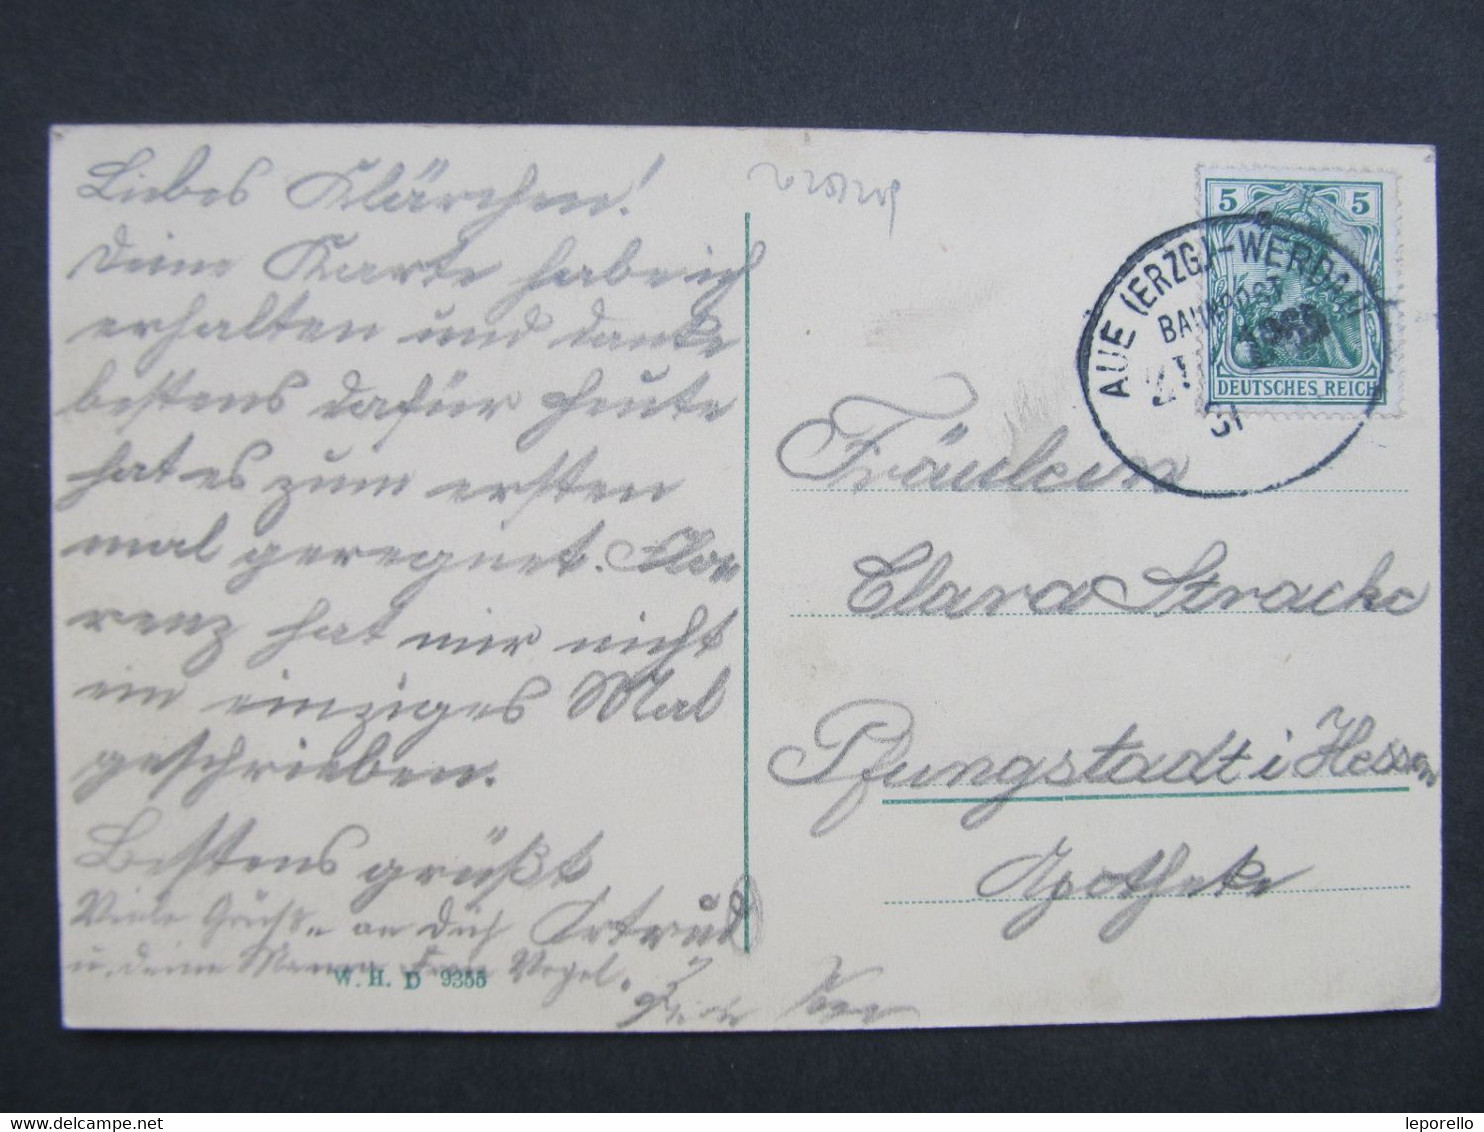 Liebes Klärchen!
Deine Karte habe ich
erhalten und danke
bestens dafür heute
hat es zum ersten
mal geregnet. Flo
renz hat mir nicht
ein einziges Mal
geschrieben.
Bestens grüßt
Viele Grüße an Dich
u. deine Mama Frau Vogel.
W. H. D 9355
5 5
DEUTSCHES REICH
AUE (ERZG.)-WERDAU
BAHNPOST
Fräulein
Clara Stracke
Pfungstadt i Hessen
Apotheke
www.delcampe.net
leporello